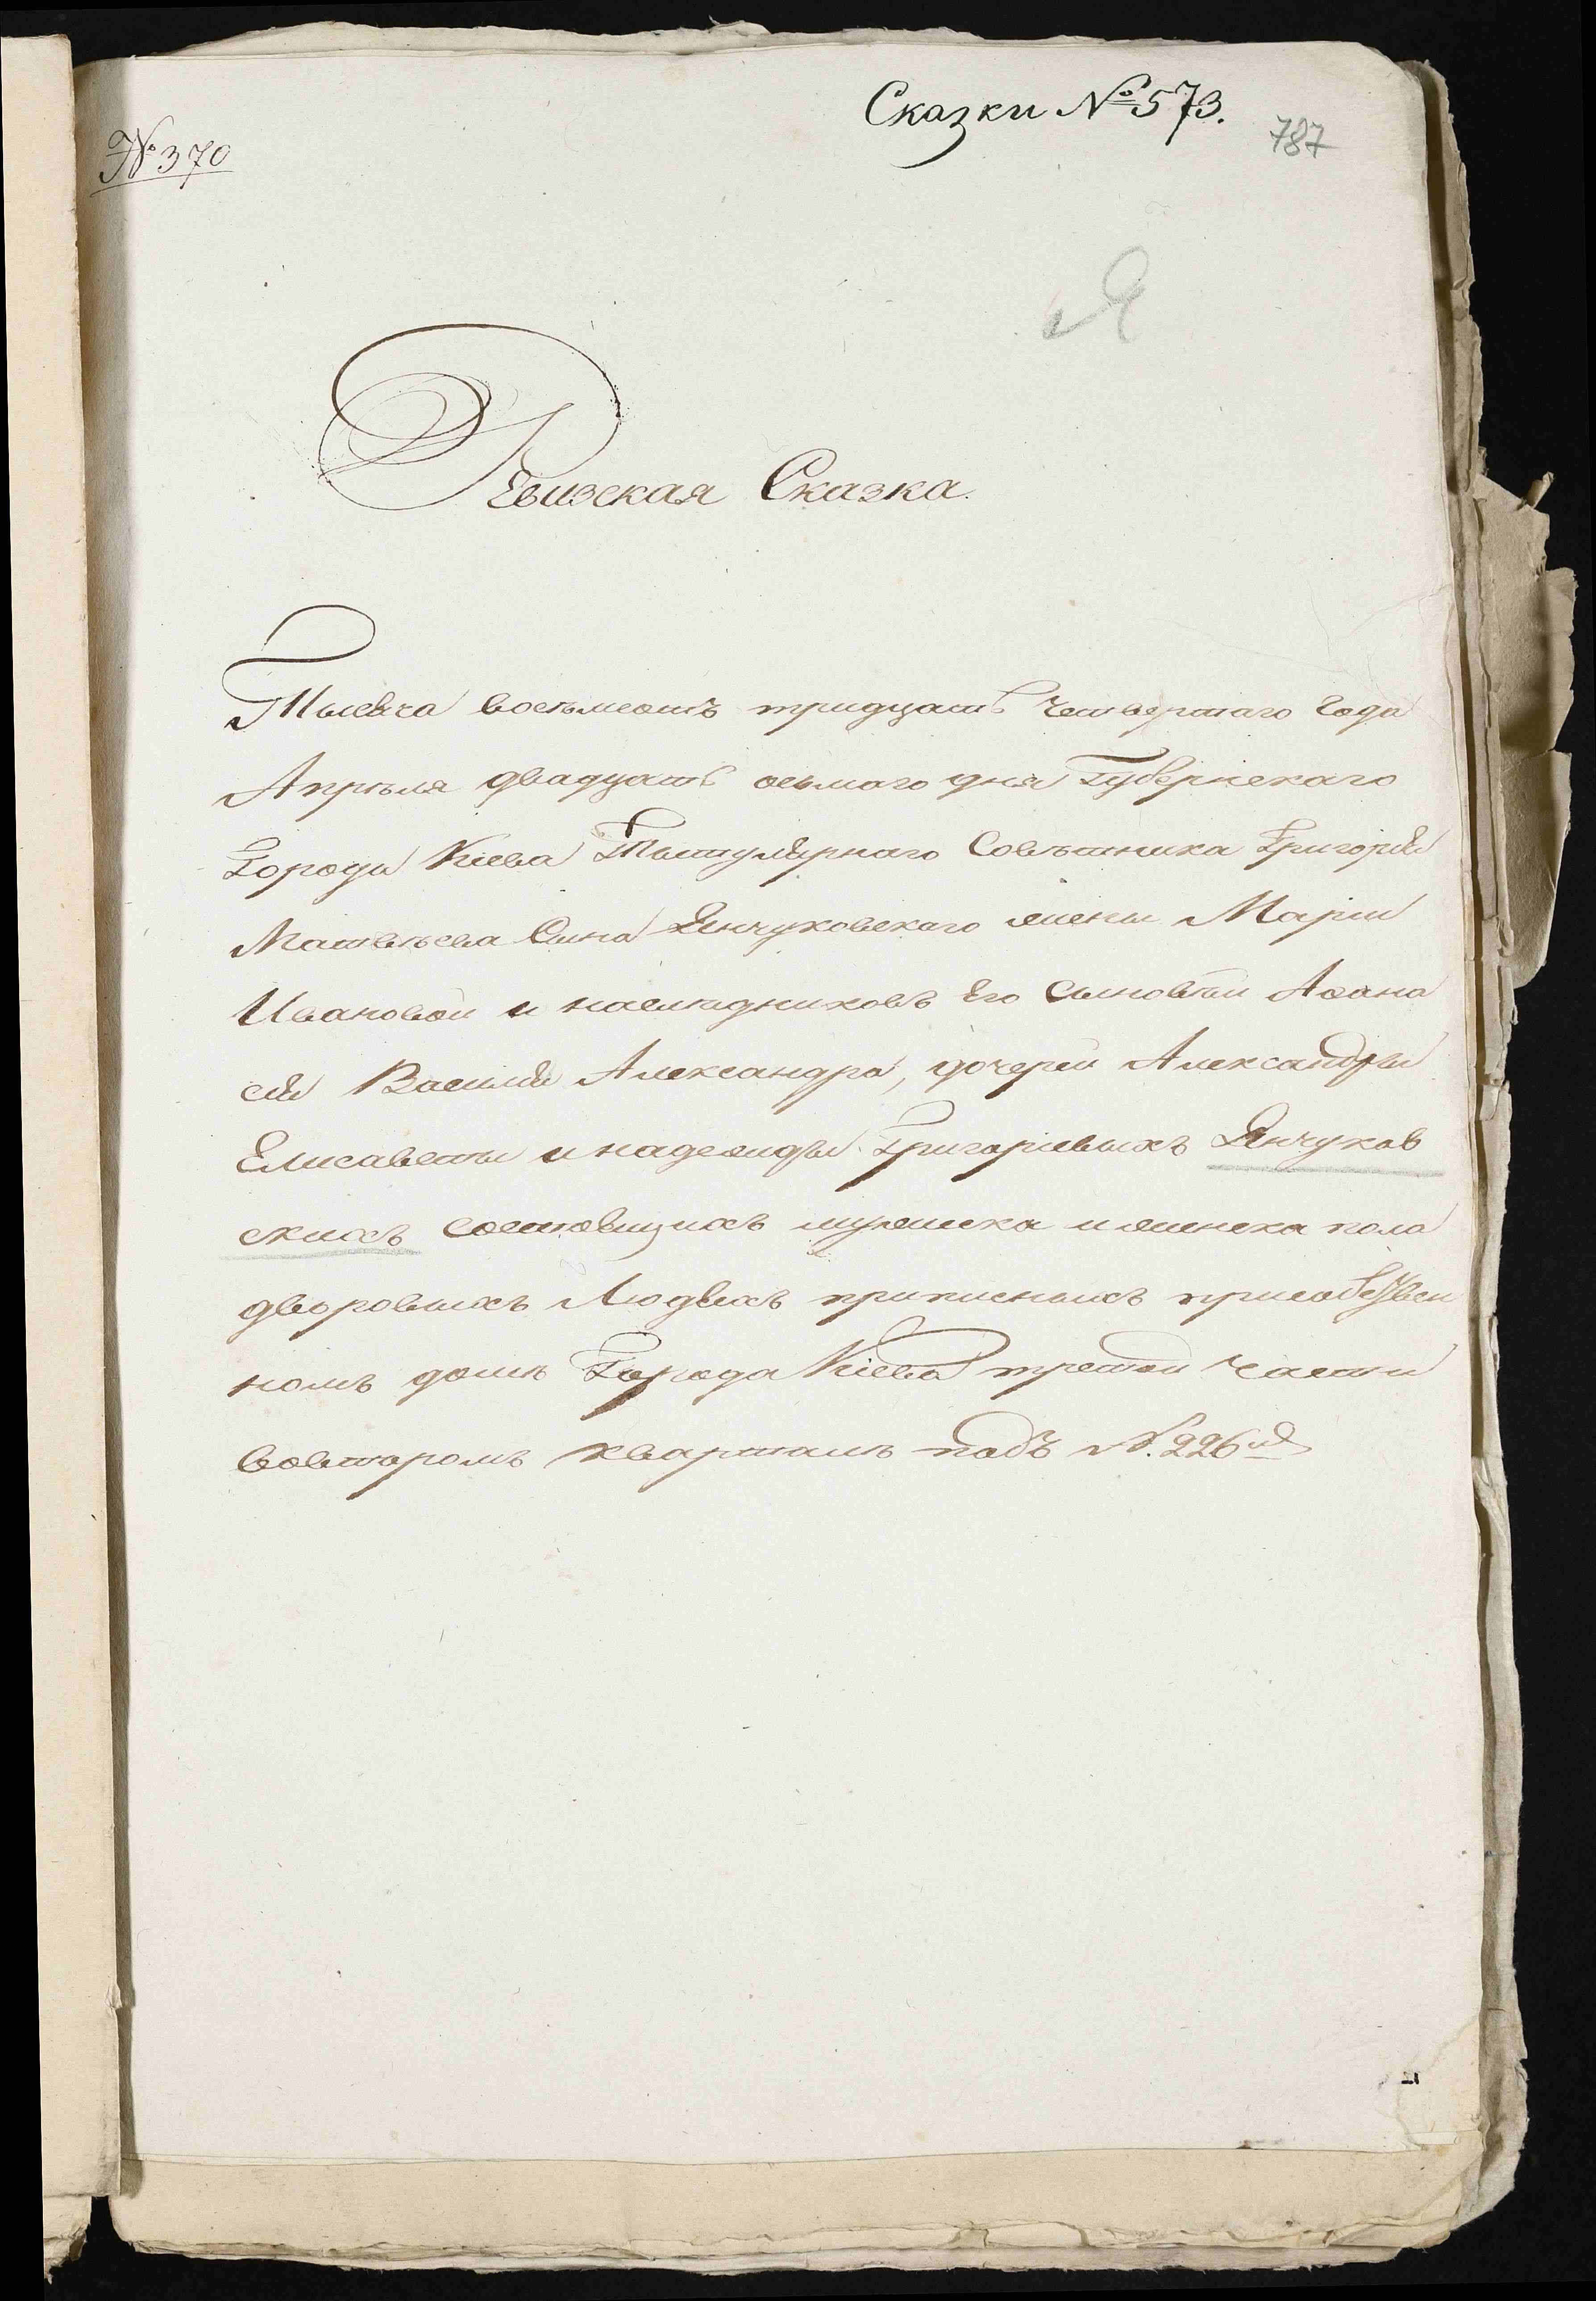 Сказки № 573.
787
№ 370
Я
Ревизская Сказка.
Тысяча восемьсотъ тридцать четвертаго года
Апрѣля двадцать осьмаго дня Губернскаго
Города Кіева Титулярнаго Совѣтника Григорія
Матвѣева Сына Янчуковскаго жены Маріи
Ивановой и наслѣдниковъ Его Сыновей Аѳана
сія Василія Александра, дочерей Александры
Елисаветы и надежды Григоріевыхъ Янчуков
скихъ Состоящихъ мужеска и женска пола
дворовыхъ Людяхъ приписныхъ присобствен
номъ домѣ Города Кіева третей части
вовторомъ кварталѣ подъ №. 226мъ